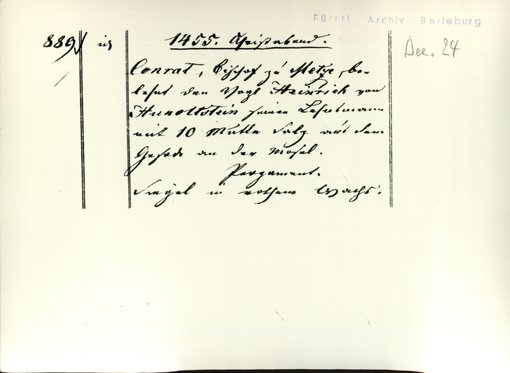 Fürstl. Archiv Berleburg
Dec. 24
889
1455. Christabend.
Conrat, Bischof zu Metze, be-
lehnt den Vogt Heinrich von
Hunoltstein seinen Lehnmann
mit 10 Mutte Salz aus dem
an der Mosel.
Pergament.
Siegel in rothem Wachs.